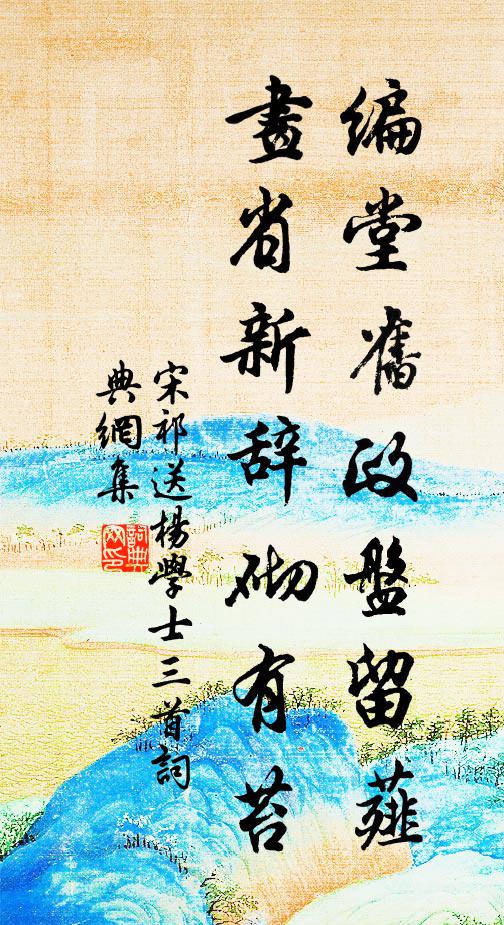 編堂舊政盤留薤
畫省新辞砌有苔
宋祁送楊學士三首詞
典網集
詞典
网印